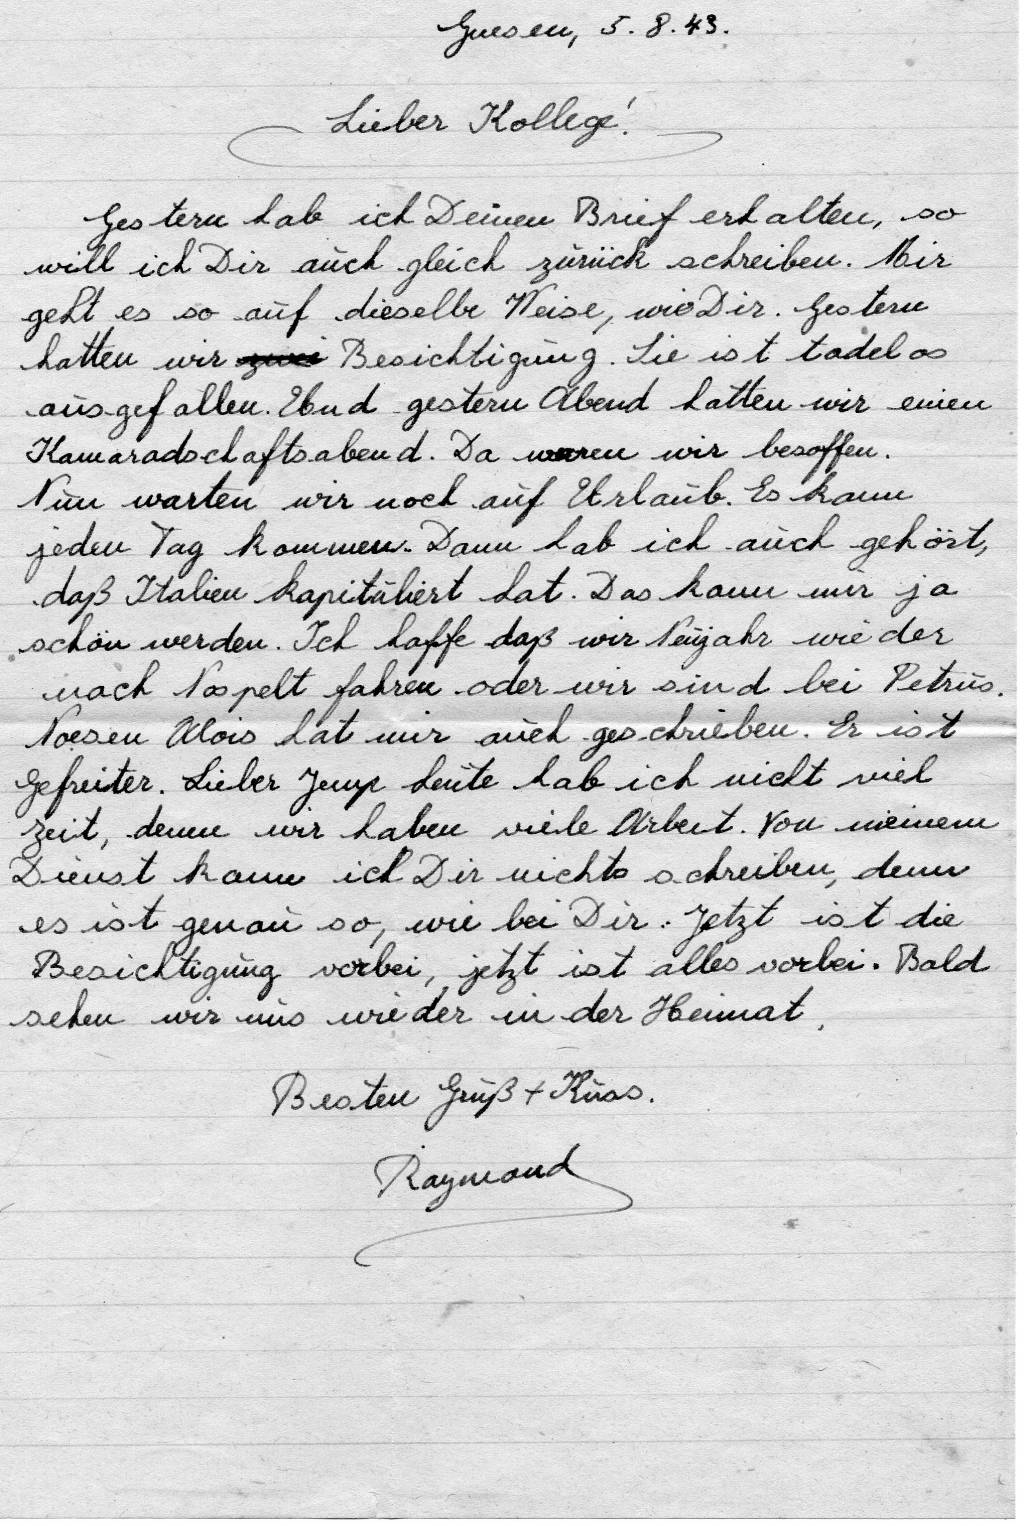 Gnesen, 5. 8. 43.
Lieber Kollege!
Gestern hab ich Deinen Brief erhalten, so
will ich Dir auch gleich zurück schreiben. Mir
geht es so auf dieselbe Weise, wie Dir. Gestern
hatten wir zwei Besichtigung. Sie ist tadelos
ausgefallen. Und gestern Abend hatten wir einen
Kamaradschaftsabend. Da waren wir besoffen.
Nun warten wir noch auf Urlaub. Es kann
jeden Tag kommen. Dann hab ich auch gehört,
daß Italien kapituliert hat. Das kann nur ja
schön werden. Ich hoffe daß wir Neujahr wieder
nach Nospelt fahren oder wir sind bei Petrus.
Noesen Alois hat mir auch geschrieben. Er ist
Gefreiter. Lieber Jemp heute hab ich nicht viel
Zeit, denn wir haben viele Arbeit. Von meinem
Dienst kann ich Dir nichts schreiben, denn
es ist genau so, wie bei Dir. Jetzt ist die
Besichtigung vorbei, jetzt ist alles vorbei. Bald
sehen wir uns wieder in der Heimat.
Besten Gruß + Kuss.
Raymond